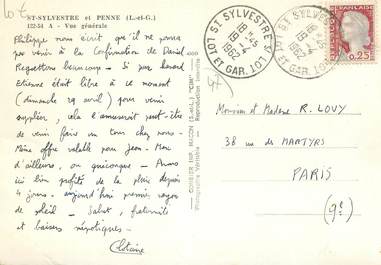 Lot
ST-SYLVESTRE et PENNE (L.-et-G.)
122-54 A - Vue générale
Philippe nous écrit que il ne pourra
pas venir à la Confirmation de Daniel
Regrettons beaucoup - Si par hasard
Etienne était libre à ce moment
(dimanche 29 avril) pour venir
suppléer, cela l'amuserait peut-être
de venir faire un tour chez nous.
Même offre valable pour Jean-Marc
d'ailleurs, ou quiconque - Avons
ici bien profité de la pluie depuis
4 jours - aujourd'hui premier rayon
de soleil - Salut, fraternité
et baisers népotiques -
Clotaire
COMBIER IMP. MACON (S.-et-L.) "CIM"
Photographie Véritable - Reproduction interdite
ST SYLVESTRE S. LOT
1962
LOT ET GAR.
ST SYLVESTRE S. LOT
1962
LOT ET GAR.
0,25
Monsieur et Madame R. LOUY
38 rue des MARTYRS
PARIS
(9e)